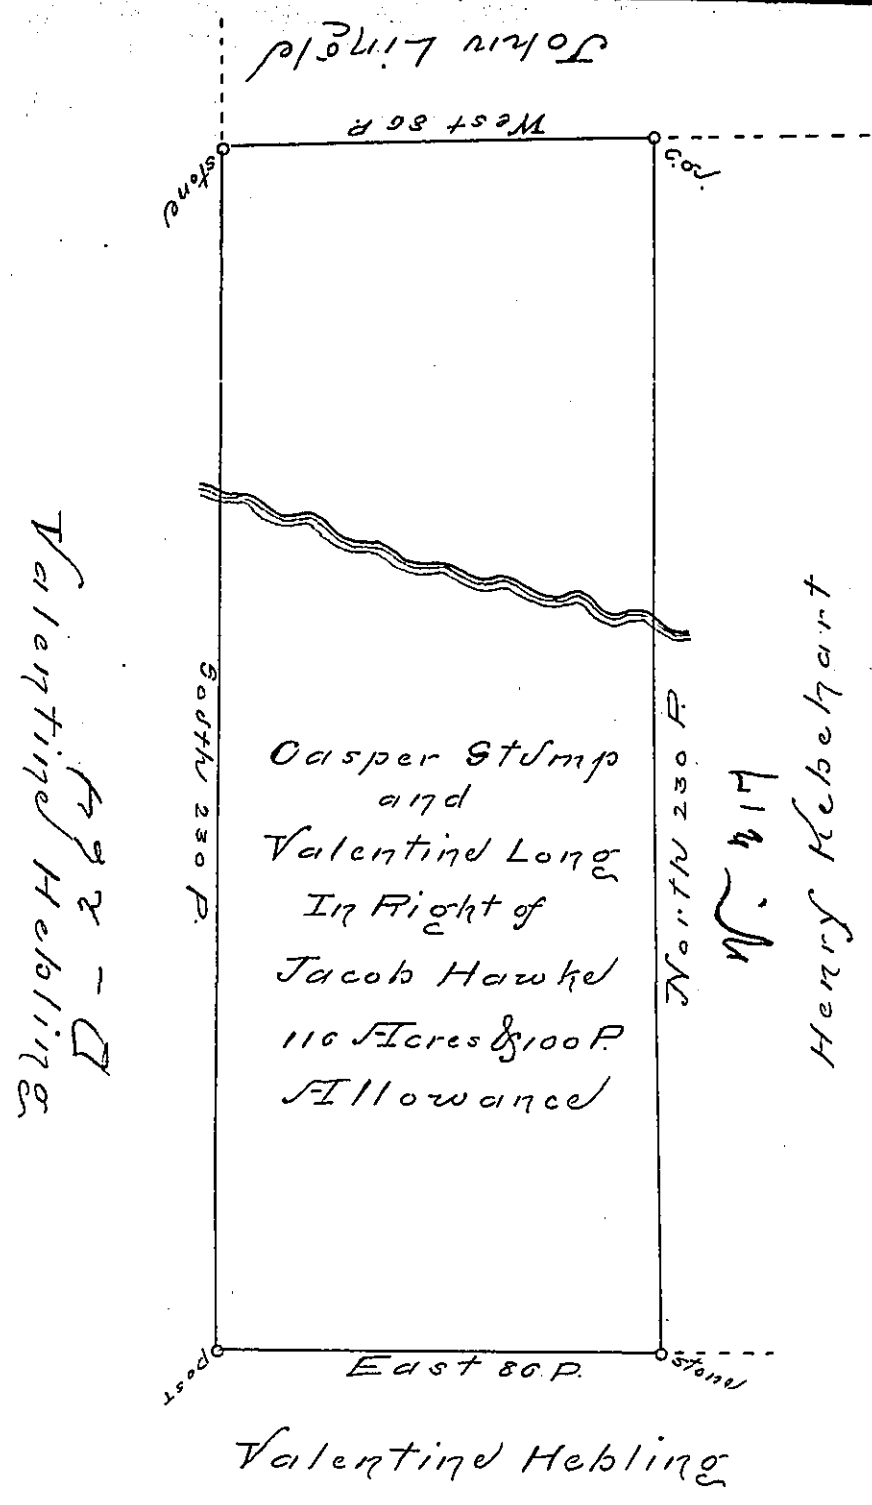 John Lingle
West 86 P.
stone
South 230 P.
Valentine Hebling
Casper Stump
and
Valentine Long
In Right of
Jacob Hawke
116 Acres & 100 P.
Allowance
North 230 P.
Henry Kebehart
post
East 86 P.
stone
Valentine Hebling